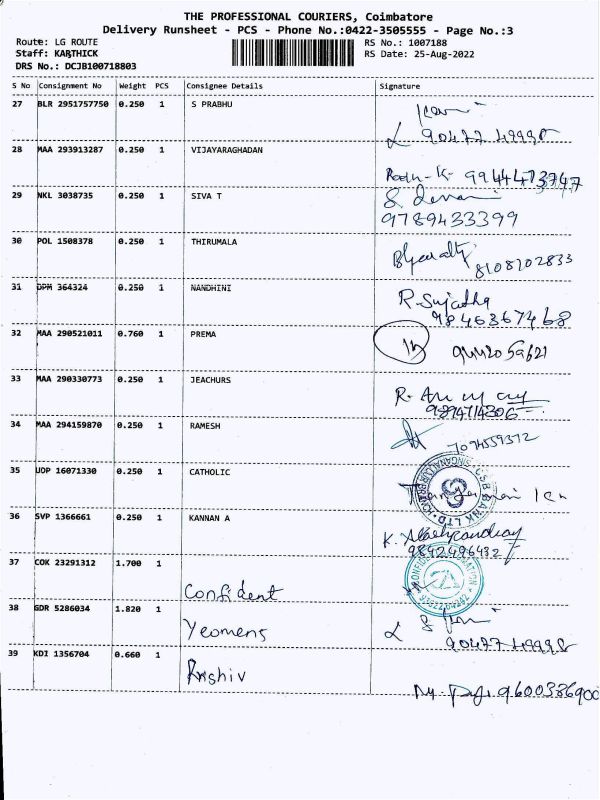 THE PROFESSIONAL COURIERS, Coimbatore
Delivery Runsheet - PCS - Phone No.:0422-3505555 - Page No.:3
Route: LG ROUTE
RS No.: 1007188
Staff: KARTHICK
RS Date: 25-Aug-2022
DRS No.: DCJB100718803
S No Consignment No Weight PCS Consignee Details Signature
27 BLR 2951757750 0.250 1 S PRABHU
90477 49998
28 MAA 293913287 0.250 1 VIJAYARAGHADAN
K- 9944473747
29 NKL 3038735 0.250 1 SIVA T
9789433399
30 POL 1508378 0.250 1 THIRUMALA
Bharathi 8108202833
31 DPM 364324 0.250 1 NANDHINI
R. Sujatha
9846367468
32 MAA 290521011 0.760 1 PREMA
33 MAA 290330773 0.250 1 JEACHURS
R.
9894714306
34 MAA 294159870 0.250 1 RAMESH
7094559372
35 UDP 16071330 0.250 1 CATHOLIC
36 SVP 1366661 0.250 1 KANNAN A
K.
9842496432
37 COK 23291312 1.700 1
Confident
38 GDR 5286034 1.820 1
Yeomens
90477 49998
39 KDI 1356704 0.660 1
9600386900